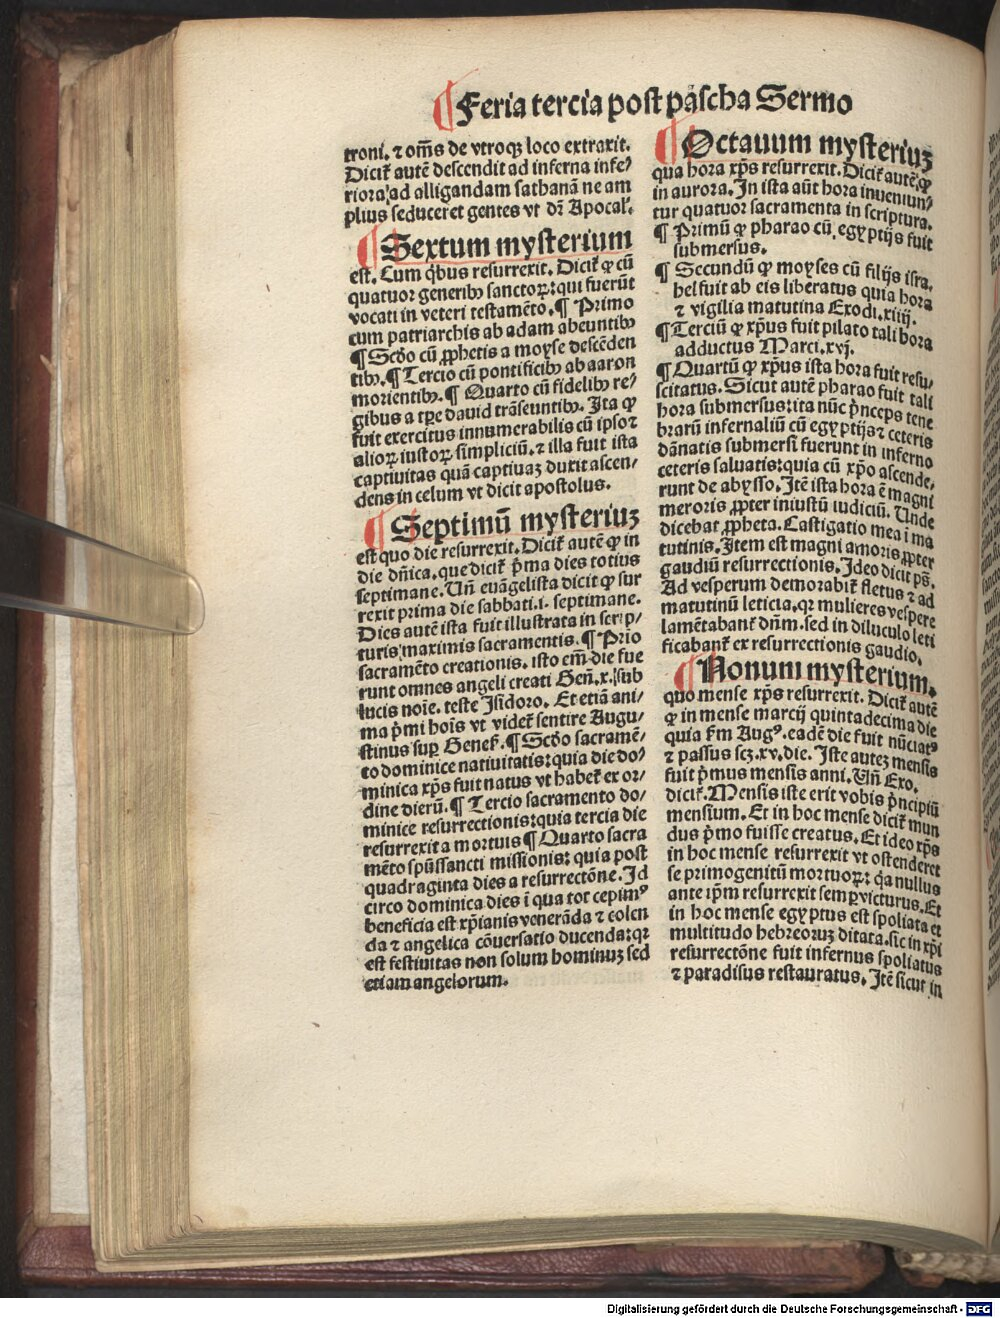 ¶ Feria tercia post pascha Sermo
troni. ⁊ om̃s de vtroqꝫ loco extraxit.
Dicit̃ autẽ descendit ad inferna infe/
riora/ad alligandam sathanã ne am
plius seduceret gentes vt dr̃ Apocal̛.
¶ Sextum mysterium
est. Cum q̃bus resurrexit. Dicit̃ ꝙ cũ
quatuor generibꝰ sanctoꝝ: qui fuerũt
vocati in veteri testamẽto. ¶ Primo
cum patriarchis ab adam abeuntibꝰ
¶ Scďo cũ ꝓphetis a moyse descẽden
tibꝰ. ¶ Tercio cũ pontificibꝰ ab aaron
morientibꝰ. ¶ Quarto cũ fidelibꝰ re/
gibus a tꝑe dauid trãseuntibꝰ. Ita ꝙ
fuit exercitus innumerabilis cũ ipsoꝝ
alioꝝ iustoꝝ simpliciũ. ⁊ illa fuit ista
captiuitas quã captiuaꝫ duxit ascen/
dens in celum vt dicit apostolus.
¶ Septimũ mysteriuꝫ
est quo die resurrexit. Dicit̃ autẽ ꝙ in
die dñica. que dicit̃ p̃ma dies totius
septimane. Vñ euãgelista dicit ꝙ sur
rexit prima die sabbati .i. septimane.
Dies autẽ ista fuit illustrata in scrip/
turis/maximis sacramentis. ¶ Prio
sacramẽto creationis. isto em̃ die fue
runt omnes angeli creati Geñ. x. sub
lucis noĩe. teste Isidoro. Et etiã ani/
ma p̃mi hoĩs vt videt̃ sentire Augu/
stinus suꝑ Genes̃. ¶ Scďo sacramẽ/
to dominice natiuitatis: quia die do/
minica xp̃s fuit natus vt habet̃ ex or/
dine dierũ. ¶ Tercio sacramento do/
minice resurrectionis: quia tercia die
resurrexit a mortuis ¶ Quarto sacra
mẽto spũssancti missionis: quia post
quadraginta dies a resurrectõne. Id
circo dominica dies ĩ qua tot cepimꝰ
beneficia est xp̃ianis venerãda ⁊ colen
da ⁊ angelica cõuersatio ducenda: qꝛ
est festiuitas non solum hominuꝫ sed
etiam angelorum.
¶ Octauum mysteriuꝫ
qua hora xp̃s resurrexit. Dicit̃ autẽ/ꝙ
in aurora. In ista aũt hora inueniun/
tur quatuor sacramenta in scriptura.
¶ Primũ ꝙ pharao cũ egyptijs fuit
submersus.
¶ Secundũ ꝙ moyses cũ filijs isra.
hel fuit ab eis liberatus quia hora
⁊ vigilia matutina Exodi. xiiij.
¶ Terciũ ꝙ xp̃us fuit pilato tali hora
adductus Marci. xvj.
¶ Quartũ ꝙ xp̃us ista hora fuit resu/
scitatus. Sicut autẽ pharao fuit tali
hora submersus: ita nũc p̃nceps tene
brarũ infernaliũ cũ egyptijs ⁊ ceteris
dãnatis submersi fuerunt in inferno
ceteris saluatis: quia cũ xp̃o ascende.
runt de abysso. Itẽ ista hora ẽ magni
meroris ꝓpter iniustũ iudiciũ. Unde
dicebat ꝓpheta. Castigatio mea ĩ ma
tutinis. Item est magni amoris ꝓpter
gaudiũ resurrectionis. Ideo dicit pš.
Ad vesperum demorabit̃ fletus ⁊ ad
matutinũ leticia. qꝛ mulieres vespere
lamẽtabant̃ dñm. sed in diluculo leti
ficabant̃ ex resurrectionis gaudio.
¶ Nonum mysterium.
quo mense xp̃s resurrexit. Dicit̃ autẽ
ꝙ in mense marcij quintadecima die
quia ẜm Augꝰ. eadẽ die fuit nũciatꝰ
⁊ passus scꝫ. xv. die. Iste auteꝫ mensis
fuit p̃mus mensis anni. Vñ Exo.
dicit̃. Mensis iste erit vobis p̃ncipiũ
mensium. Et in hoc mense dicit̃ mun
dus p̃mo fuisse creatus. Et ideo xp̃s
in hoc mense resurrexit vt ostenderet
se primogenitũ mortuoꝝ: q̃a nullus
ante ip̃m resurrexit semꝑ victurus. Et
in hoc mense egyptus est spoliata et
multitudo hebreoruꝫ ditata. sic in xp̃i
resurrectõne fuit infernus spoliatus
⁊ paradisus restauratus. Itẽ sicut in
Digitalisierung gefördert durch die Deutsche Forschungsgemeinschaft - DFG